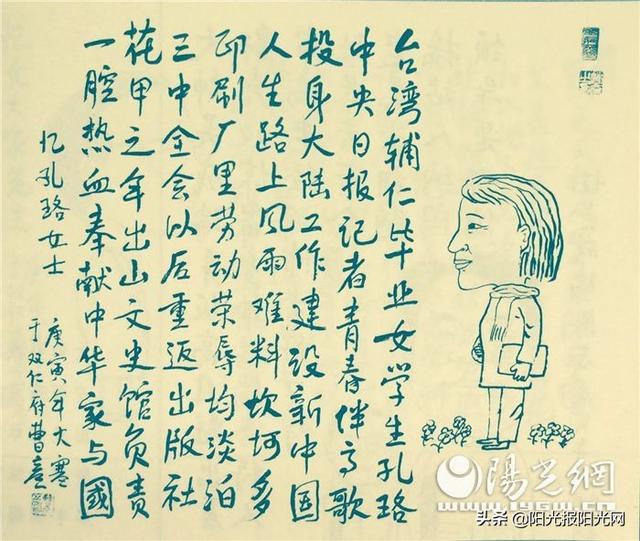 台湾辅仁毕业女学生孔珞
中央日报记者青春伴高歌
投身大陆工作建设新中国
人生路上风雨难料坎坷多
印刷厂里劳动荣辱均淡泊
三中全会以后重返出版社
花甲之年出山文史馆负责
一腔热血奉献中华家与國
忆孔珞女士
庚寅年大寒
于双仁府曹
陽光網
www.iygw.cn
头条 @阳光报阳光网